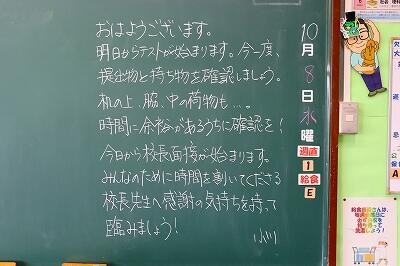 おはようございます。
明日からテストが始まります。今一度、
提出物と持ち物を確認しましょう。
机の上、脇、中の荷物も…。
時間に余裕があるうちに確認を！
今日から校長面接が始まります。
みんなのために時間を割いてくださる
校長先生へ感謝の気持ちを持って
臨みましょう！
小川
10月8日水曜
週直
1
給食
E